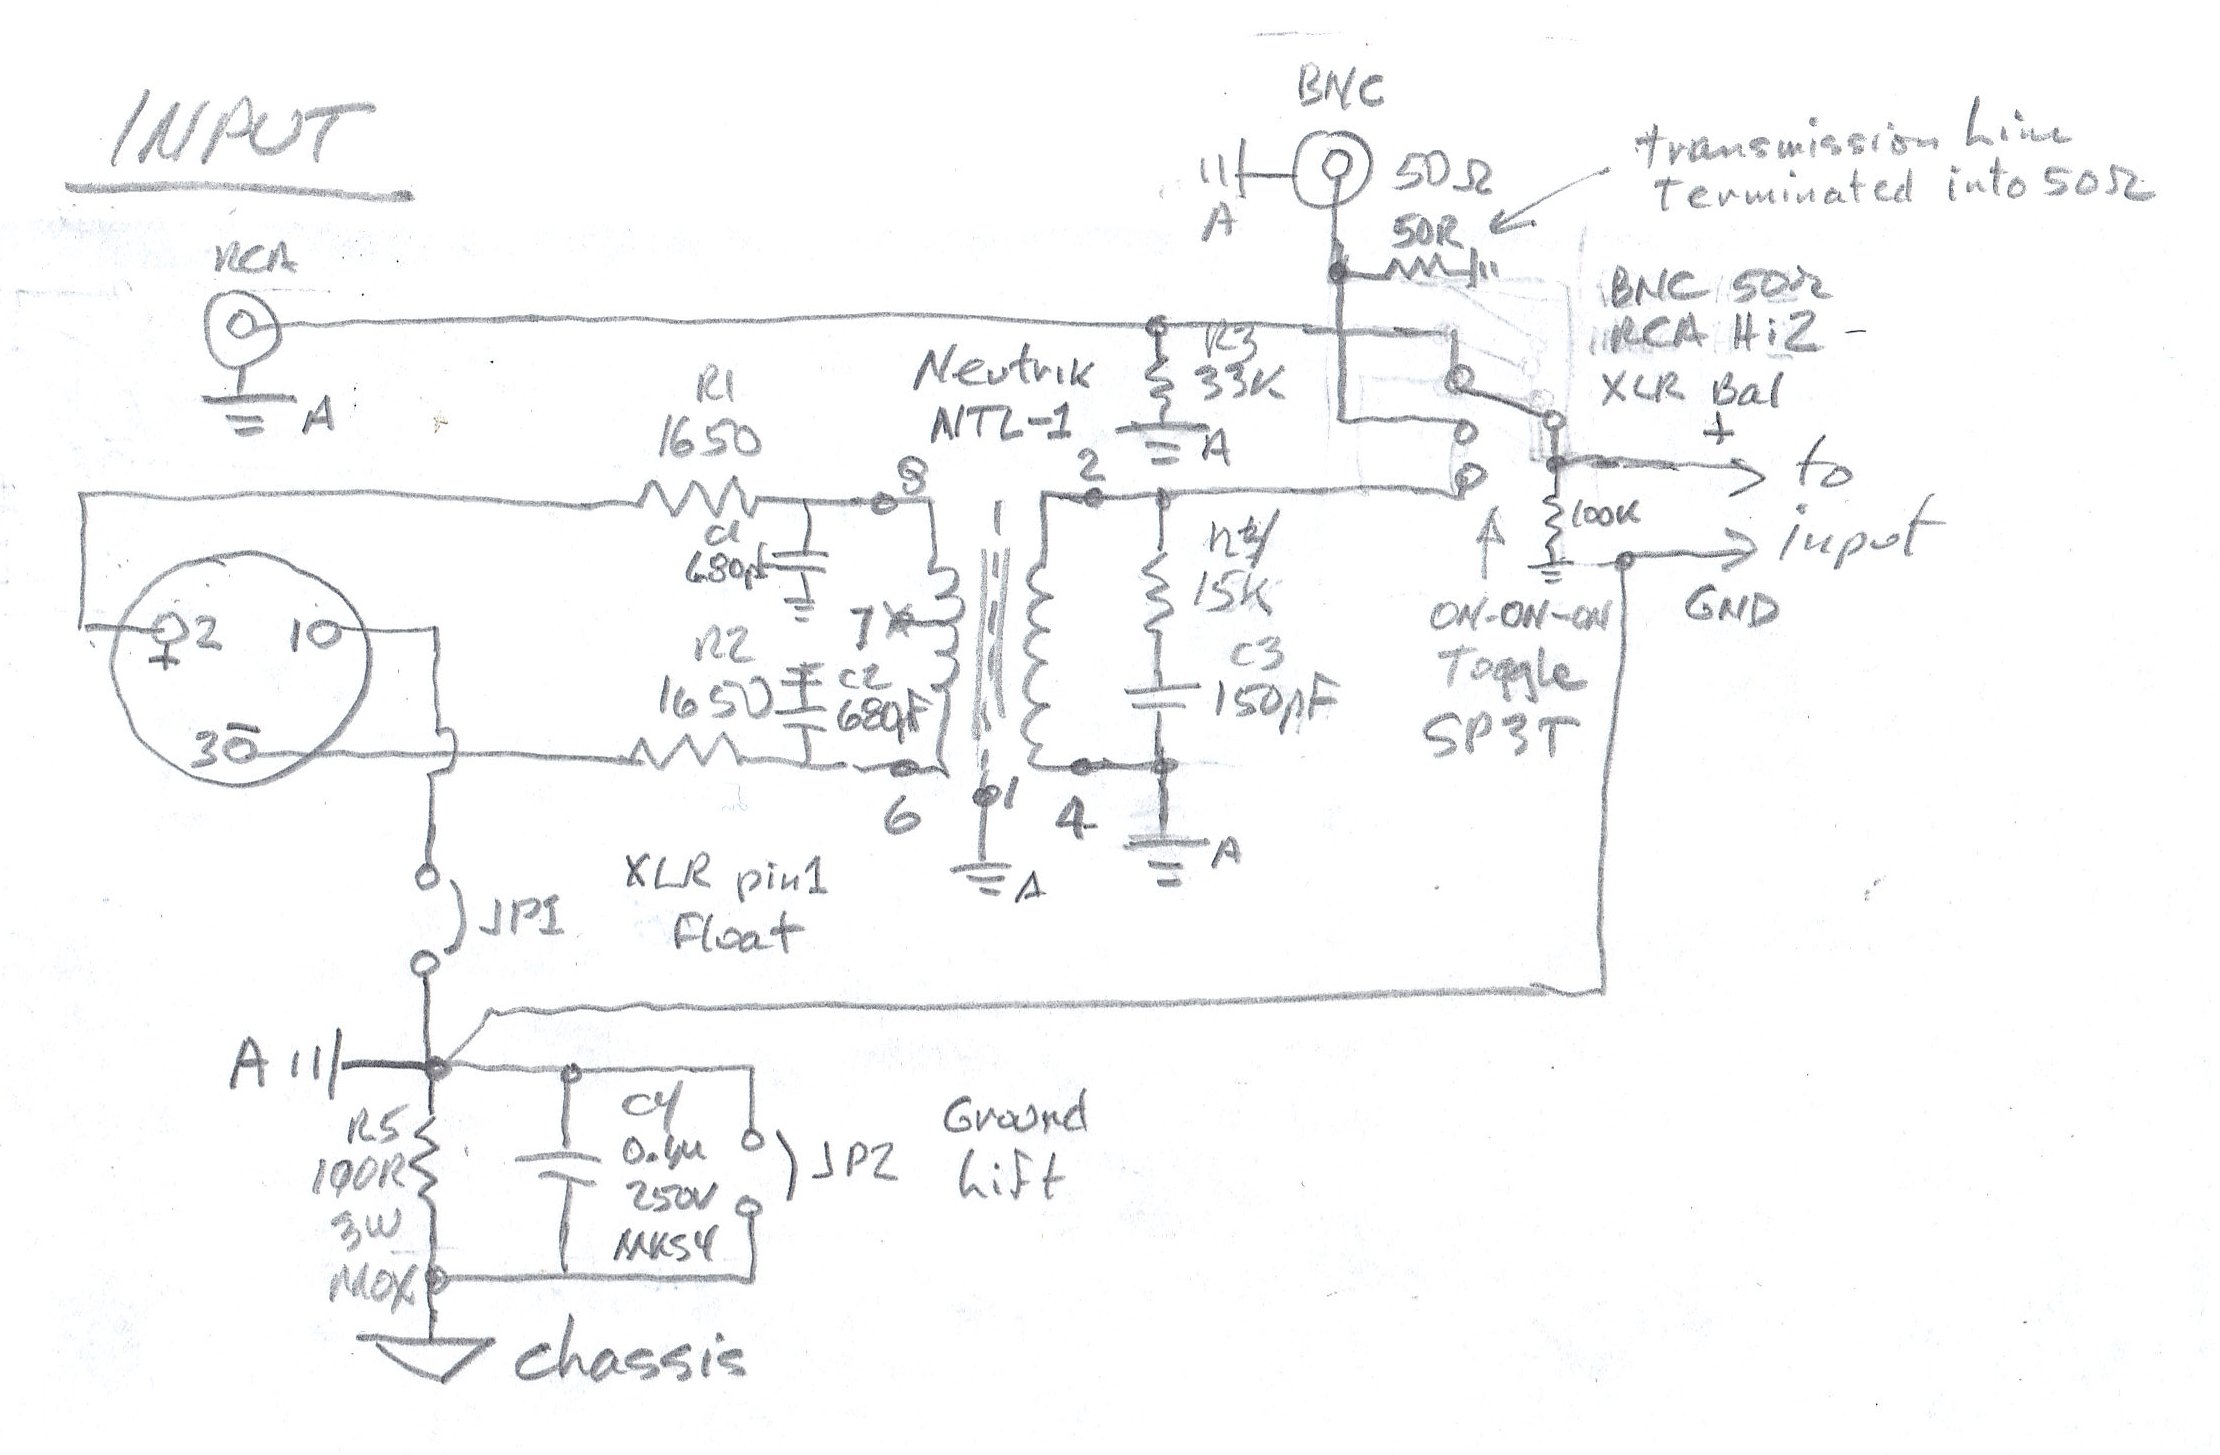 INPUT
BNC
A
50Ω
50R
transmission Line
terminated into 50Ω
RCA
A
BNC 50Ω
RCA HiZ -
XLR Bal
R3
33K
A
Neutrik
NTL-1
R1
1650
C1
680pF
8
1
2
+
to
input
100K
GND
2
+
10
3
-
7X
R2
1650
C2
680pF
15K
C3
150pF
ON-ON-ON
Toggle
SP3T
6
1
4
A
A
XLR pin1
Float
JP1
A
R5
100R
3W
MOX
C4
250V
MKS4
JP2
Ground
Lift
chassis